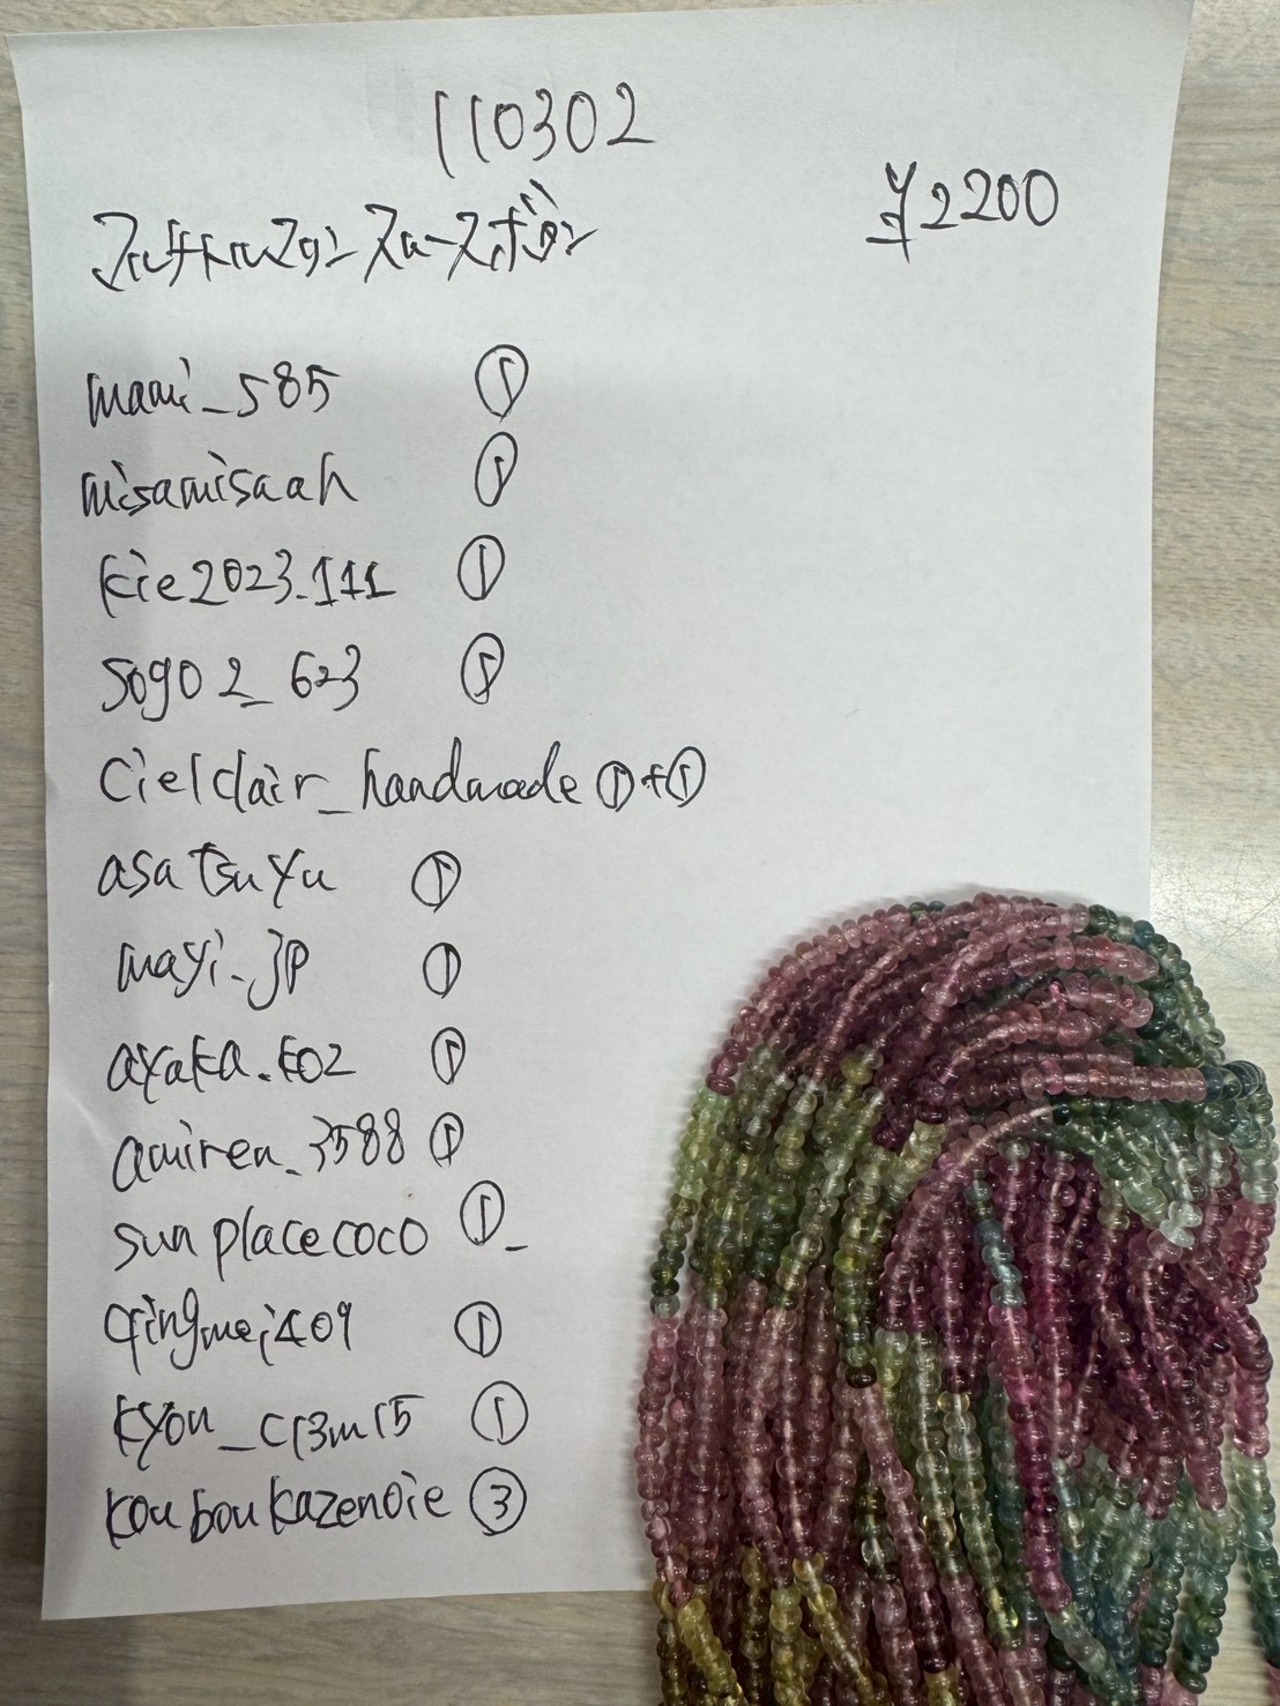 110302
¥2200
マルチトルマリン スムースボタン
mami_585 ①
misamisaah ①
kie2023.111 ①
sogo2_623 ①
cielclair_handmade ①+①
asatsuyu ①
mayi_jp ①
ayaka.k02 ①
amiren_3588 ①
sunplacecoco ①
qingmei409 ①
kyou_c13m15 ①
kouboukazenoie ③